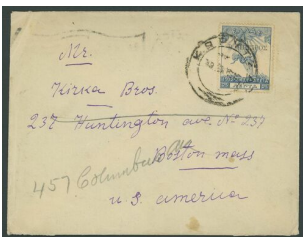 Mr.
Kirka Bros.
237 Huntington ave. No 237
457 Columbus Av
Boston mass
U.S. america